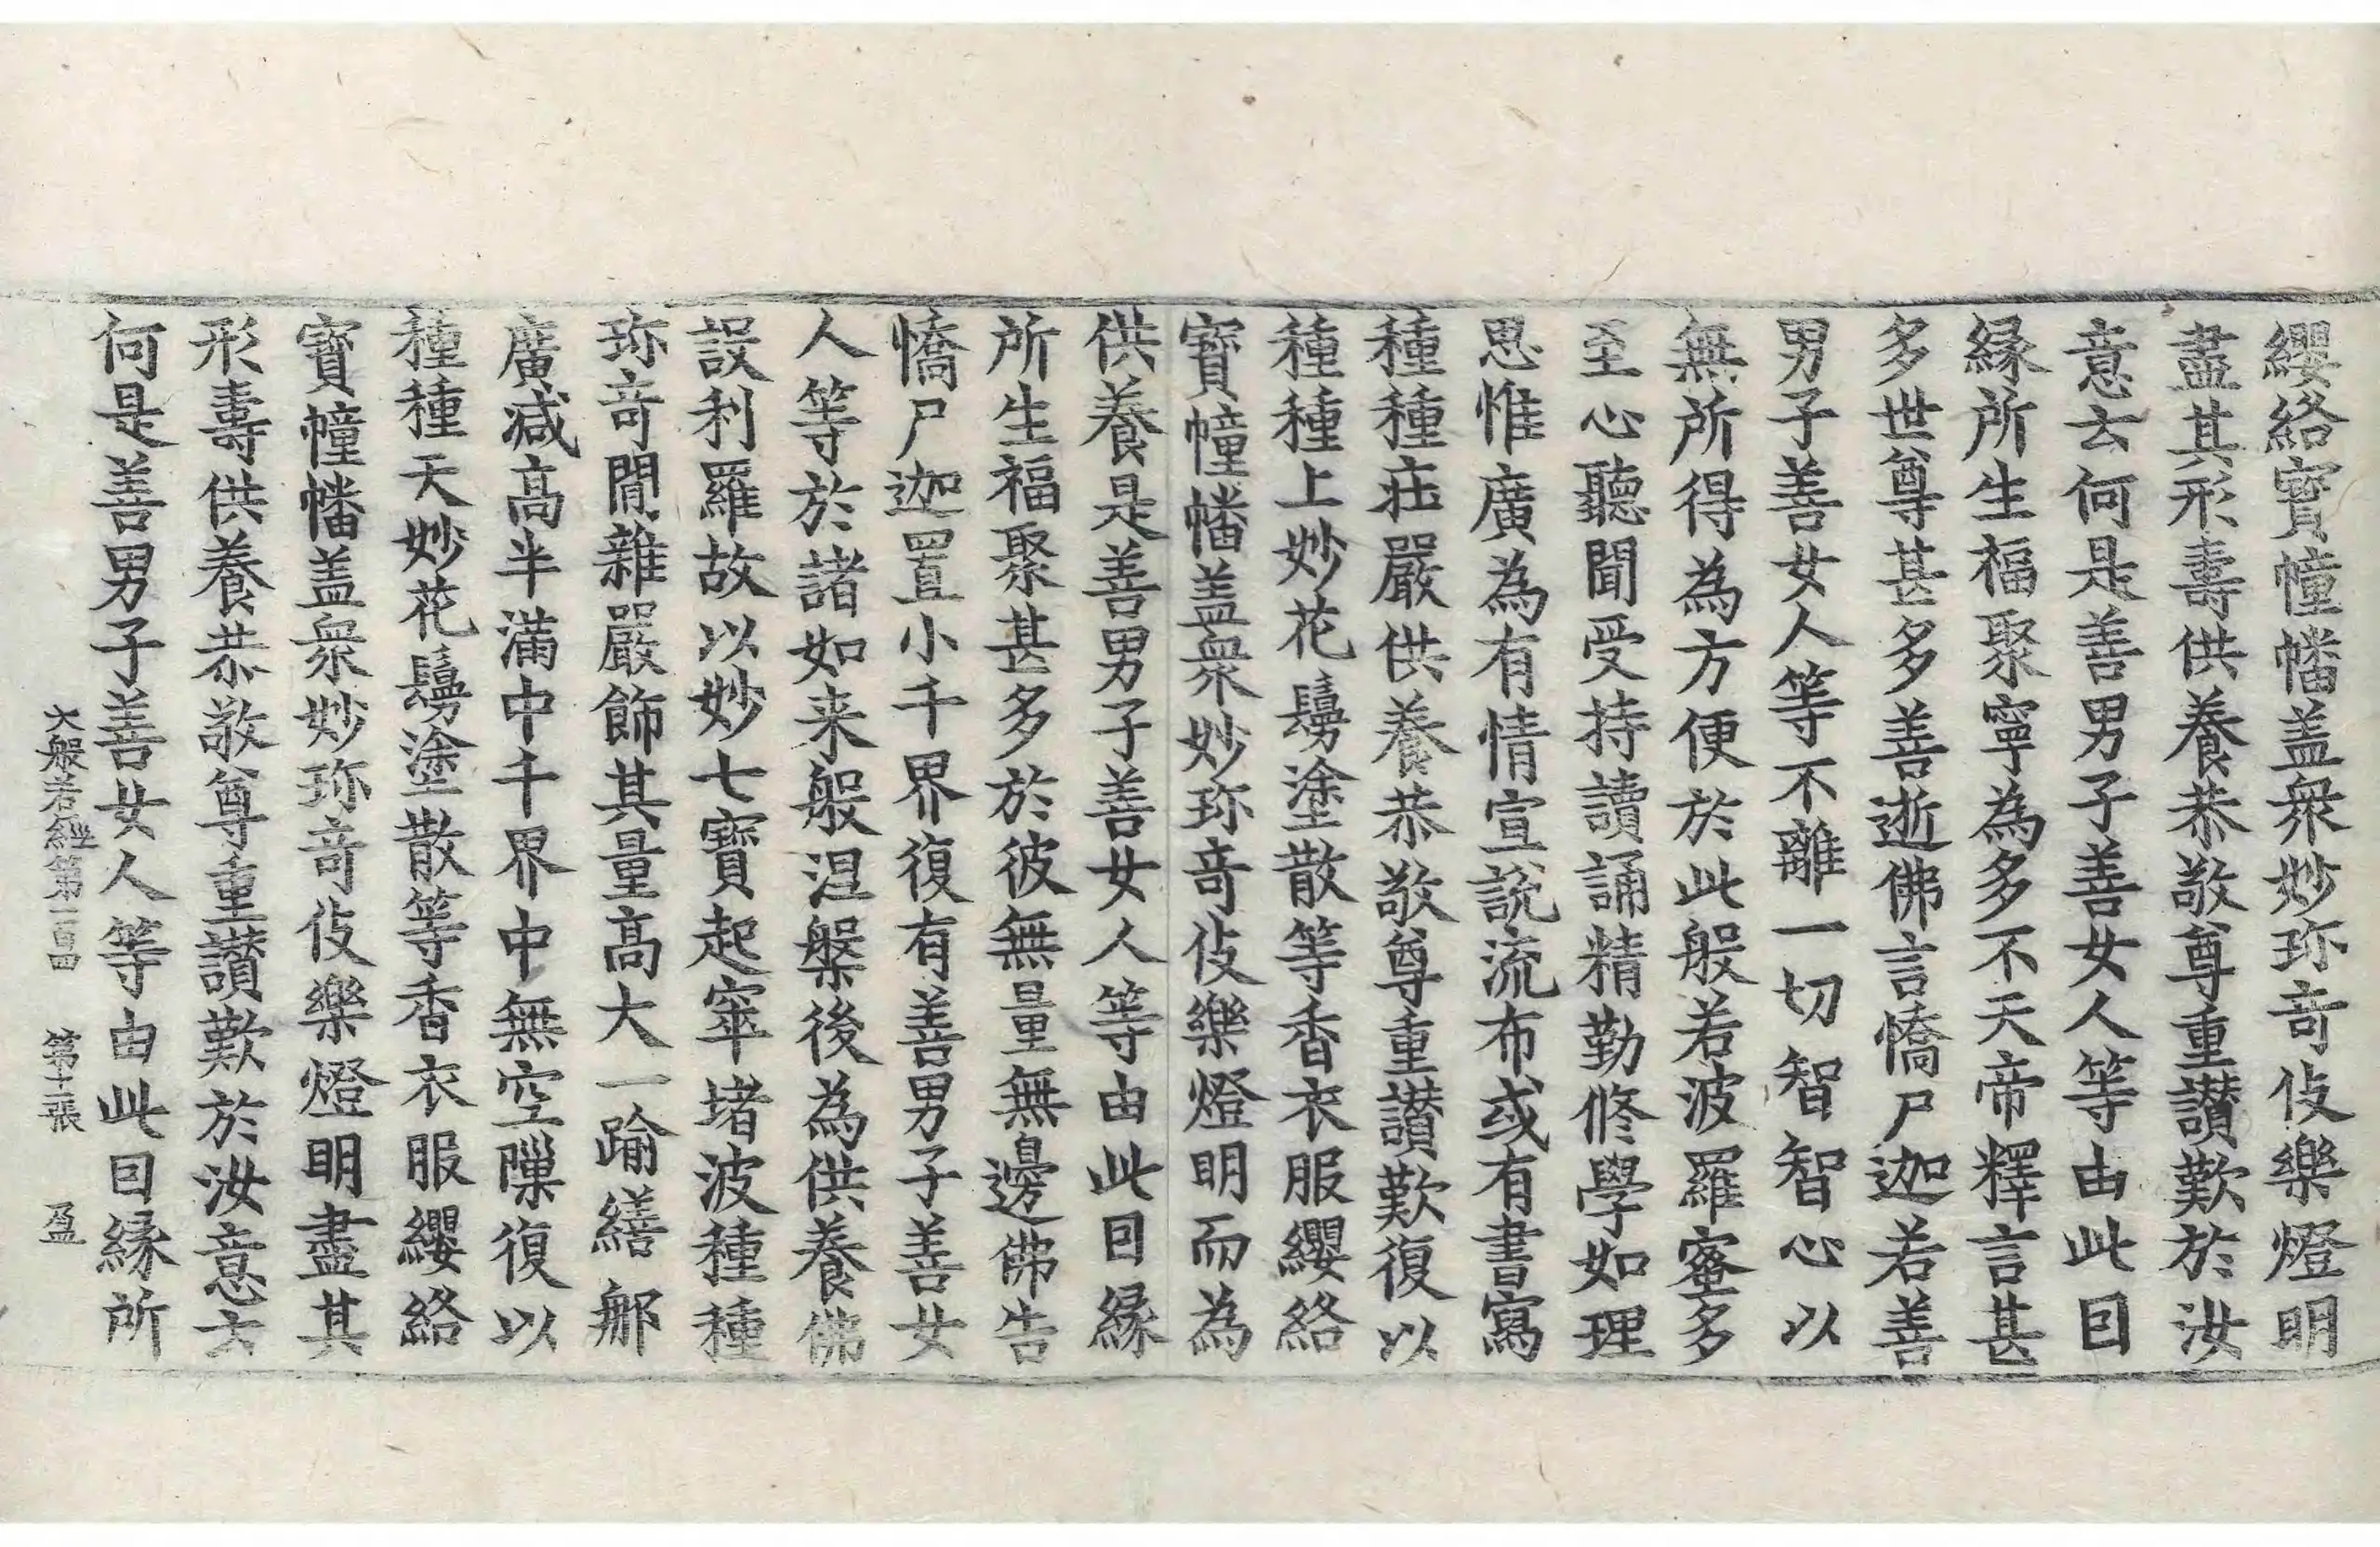 纓絡寶幢幡盖衆妙珎竒伎樂燈明
盡其形壽供養恭敬尊重讃歎於汝
意去何是善男子善女人等由此囙
縁所生福聚寧為多不天帝釋言甚
多世尊甚多善逝佛言憍尸迦若善
男子善女人等不離一切智智心以
無所得為方便於此般若波羅蜜多
至心聽聞受持讀誦精勤修學如理
思惟廣為有情宣說流布或有書寫
種種莊嚴供養恭敬尊重讃歎復以
種種上妙花鬘塗散等香衣服纓絡
寶幢幡盖衆妙珎竒伎樂燈明而為
供養是善男子善女人等由此囙縁
所生福聚甚多於彼無量無邊佛告
憍尸迦置小千界復有善男子善女
人等於諸如来般涅槃後為供養佛
設利羅故以妙七寶起窣堵波種種
珎竒間雜嚴飾其量高大一踰繕那
廣減高半滿中千界中無空隟復以
種種天妙花鬘塗散等香衣服纓絡
寶幢幡盖衆妙珎竒伎樂燈明盡其
形壽供養恭敬尊重讃歎於汝意云
何是善男子善女人等由此囙縁所
大般若經第一百四　第十二張　盈